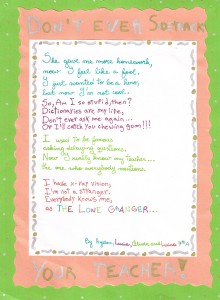 DON'T EVER SO-BACK
She gave me more homework,
now I feel like a fool.
I just wanted to be a hero,
but now I'm not cool.
So, Am I so stupid, then?
Dictionaries are my life,
Don't ever ask me again...
Or I'll catch you chewing gum!!!
I used to be famous
asking annoying questions.
Now I really know my teacher...
the one who everybody mentions.
I have x-ray vision,
I'm not a stranger.
Everybody knows me,
as THE LONE GRANGER...
By Lucia, and Lucas
YOUR TEACHER!